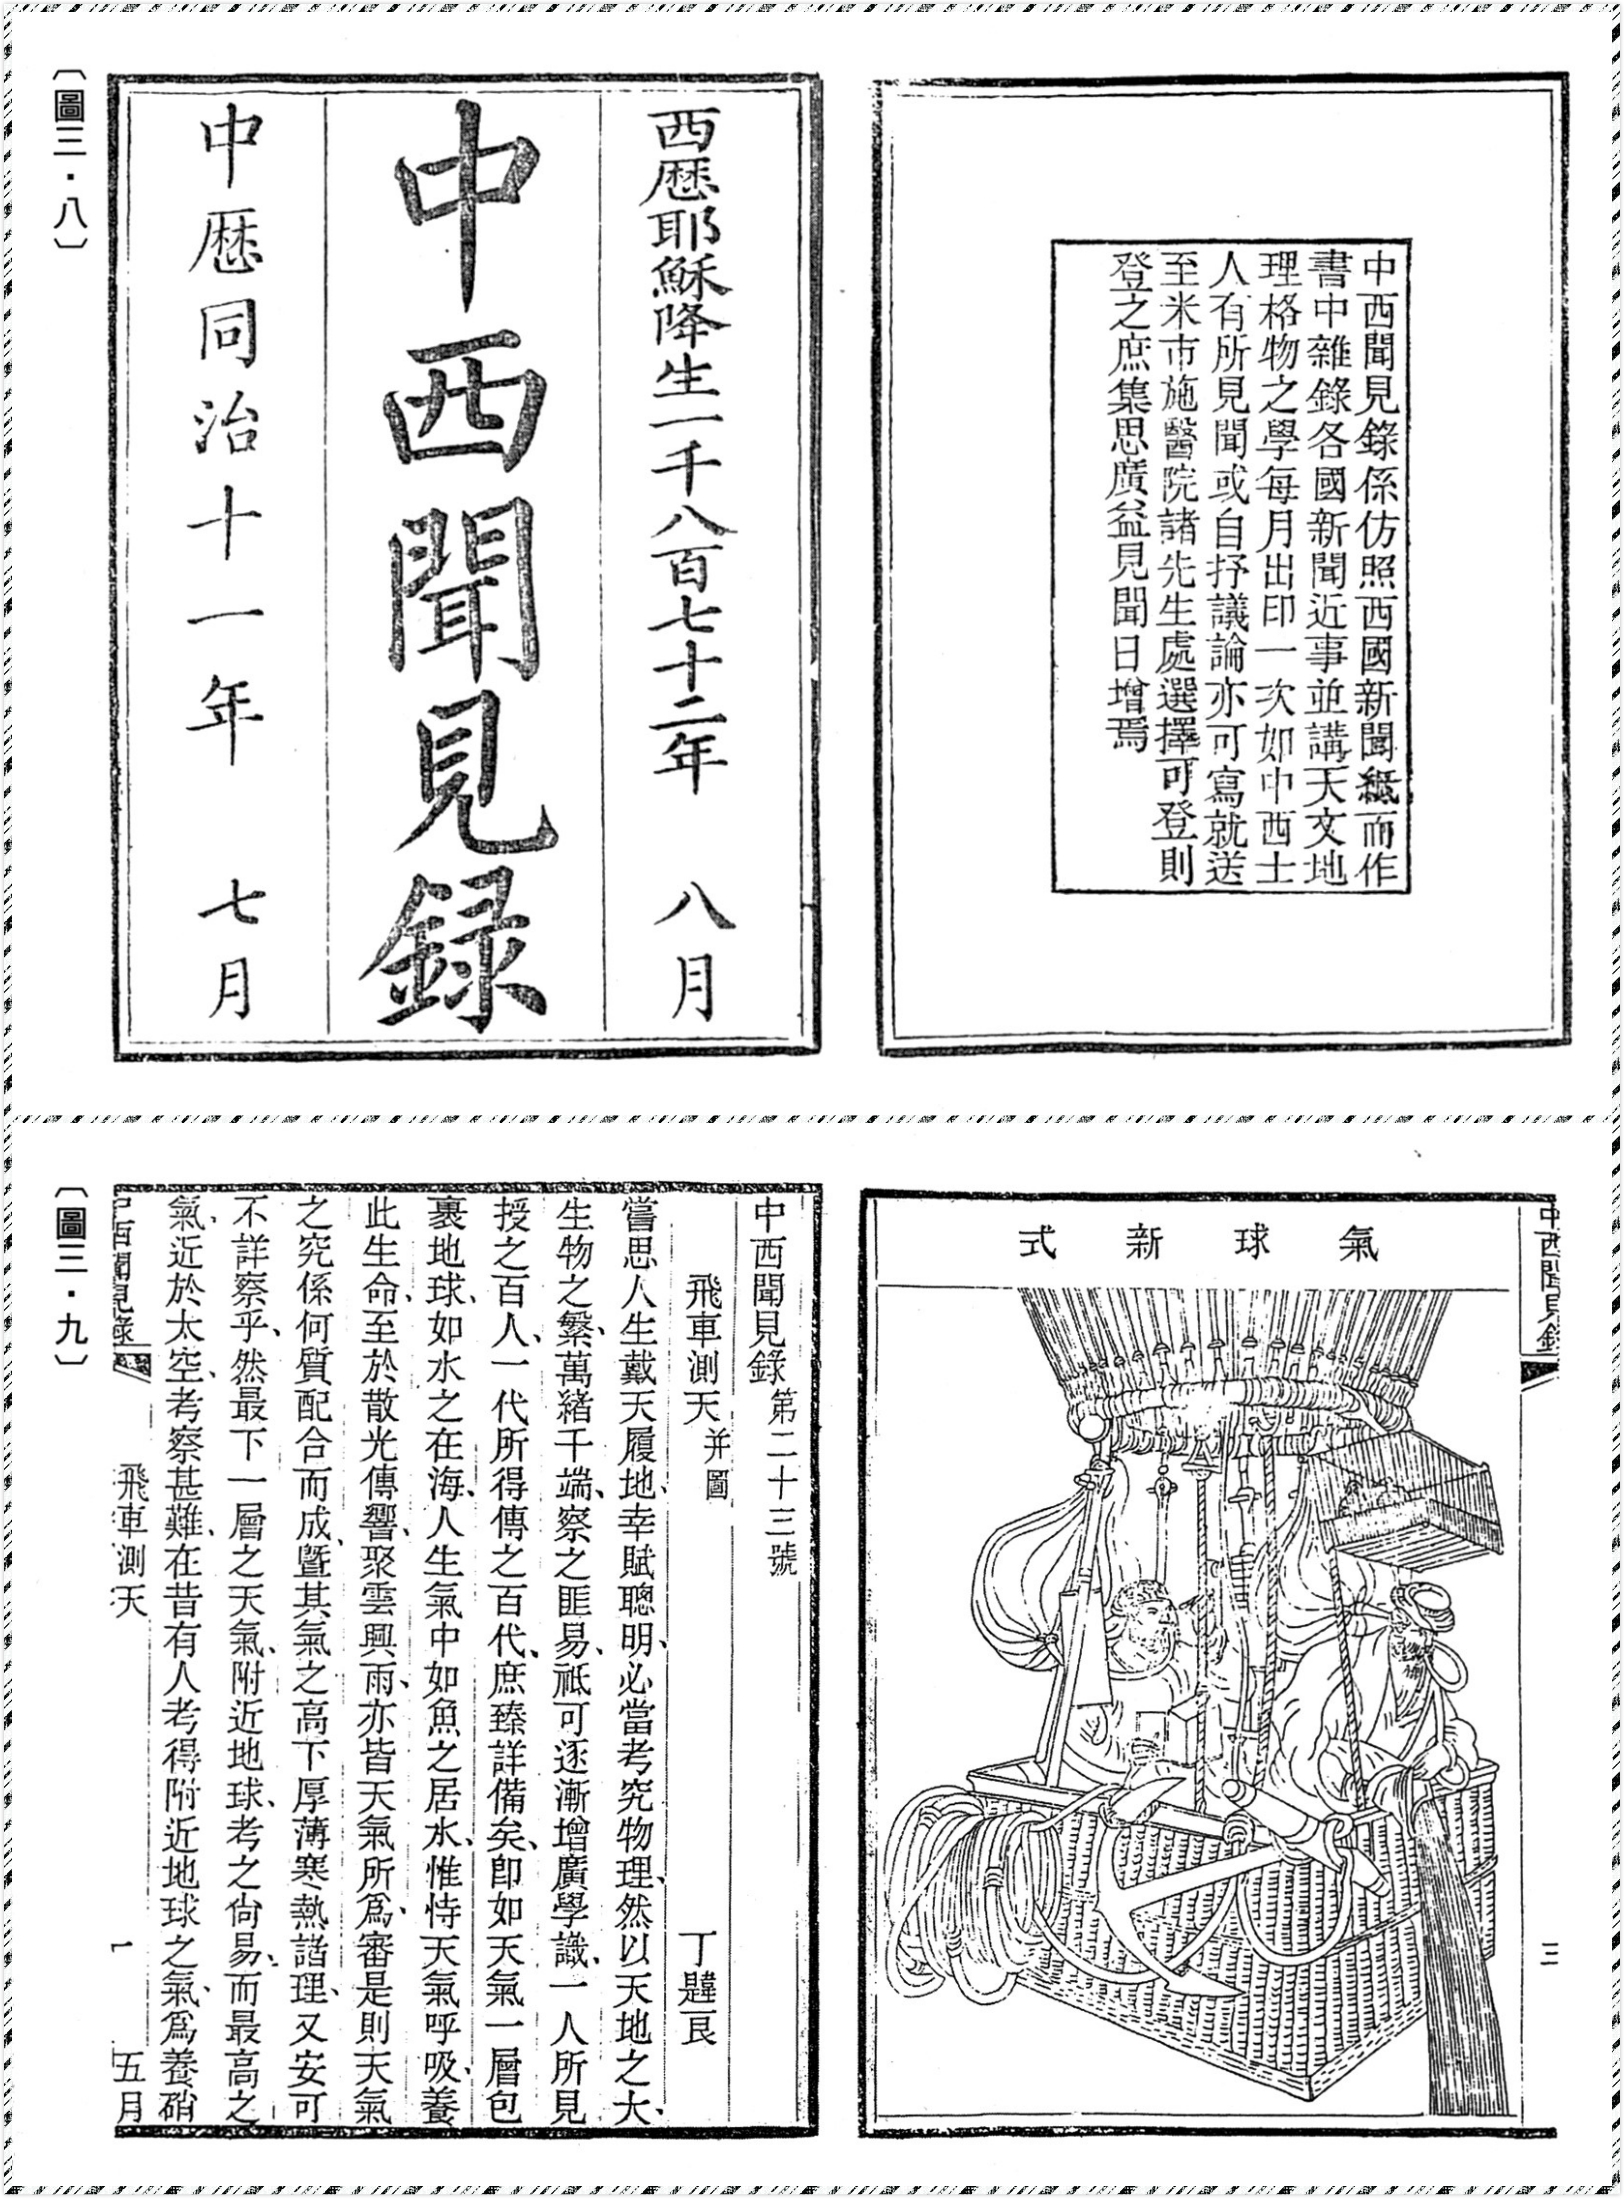 〔圖三·八〕
中西聞見錄係仿照西國新聞紙而作
書中雜錄各國新聞近事並講天文地
理格物之學每月出印一次如中西士
人有所見聞或自抒議論亦可寫就送
至米市施醫院諸先生處選擇可登則
登之庶集思廣益見聞日增焉
西歷耶穌降生一千八百七十二年 八月
中西聞見録
中歷同治十一年 七月
〔圖三·九〕
中西聞見錄
三
氣球新式
中西聞見錄第二十三號
飛車測天 并圖 丁韙良
嘗思人生戴天履地、幸賦聰明、必當考究物理、然以天地之大、
生物之繁、萬緒千端、察之匪易、祗可逐漸增廣學識、一人所見
授之百人、一代所得傳之百代、庶臻詳備矣、卽如天氣一層包
裹地球、如水之在海、人生氣中如魚之居水、惟恃天氣呼吸、養
此生命、至於散光傳響、聚雲興雨、亦皆天氣所爲、審是則天氣
之究係何質配合而成、曁其氣之高下厚薄寒熱諸理、又安可
不詳察乎、然最下一層之天氣、附近地球、考之尙易、而最高之
氣、近於太空、考察甚難、在昔有人考得附近地球之氣、爲養硝
中西聞見錄 飛車測天 一 五月